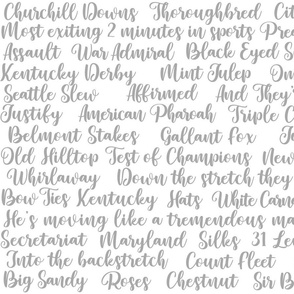 Churchill Downs Thoroughbred Cit
Most exiting 2 minutes in sports Pre
Assault War Admiral Black Eyed S
Kentucky Derby Mint Julep On
Seattle Slew Affirmed And They'
Justify American Pharoah Triple C
Belmont Stakes Gallant Fox J
Old Hilltop Test of Champions New
Whirlaway Down the stretch they
Bow Ties Kentucky Hats White Carna
He's moving like a tremendous ma
Secretariat Maryland Silks 31 Le
Into the backstretch Count Fleet
Big Sandy Roses Chestnut Sir B